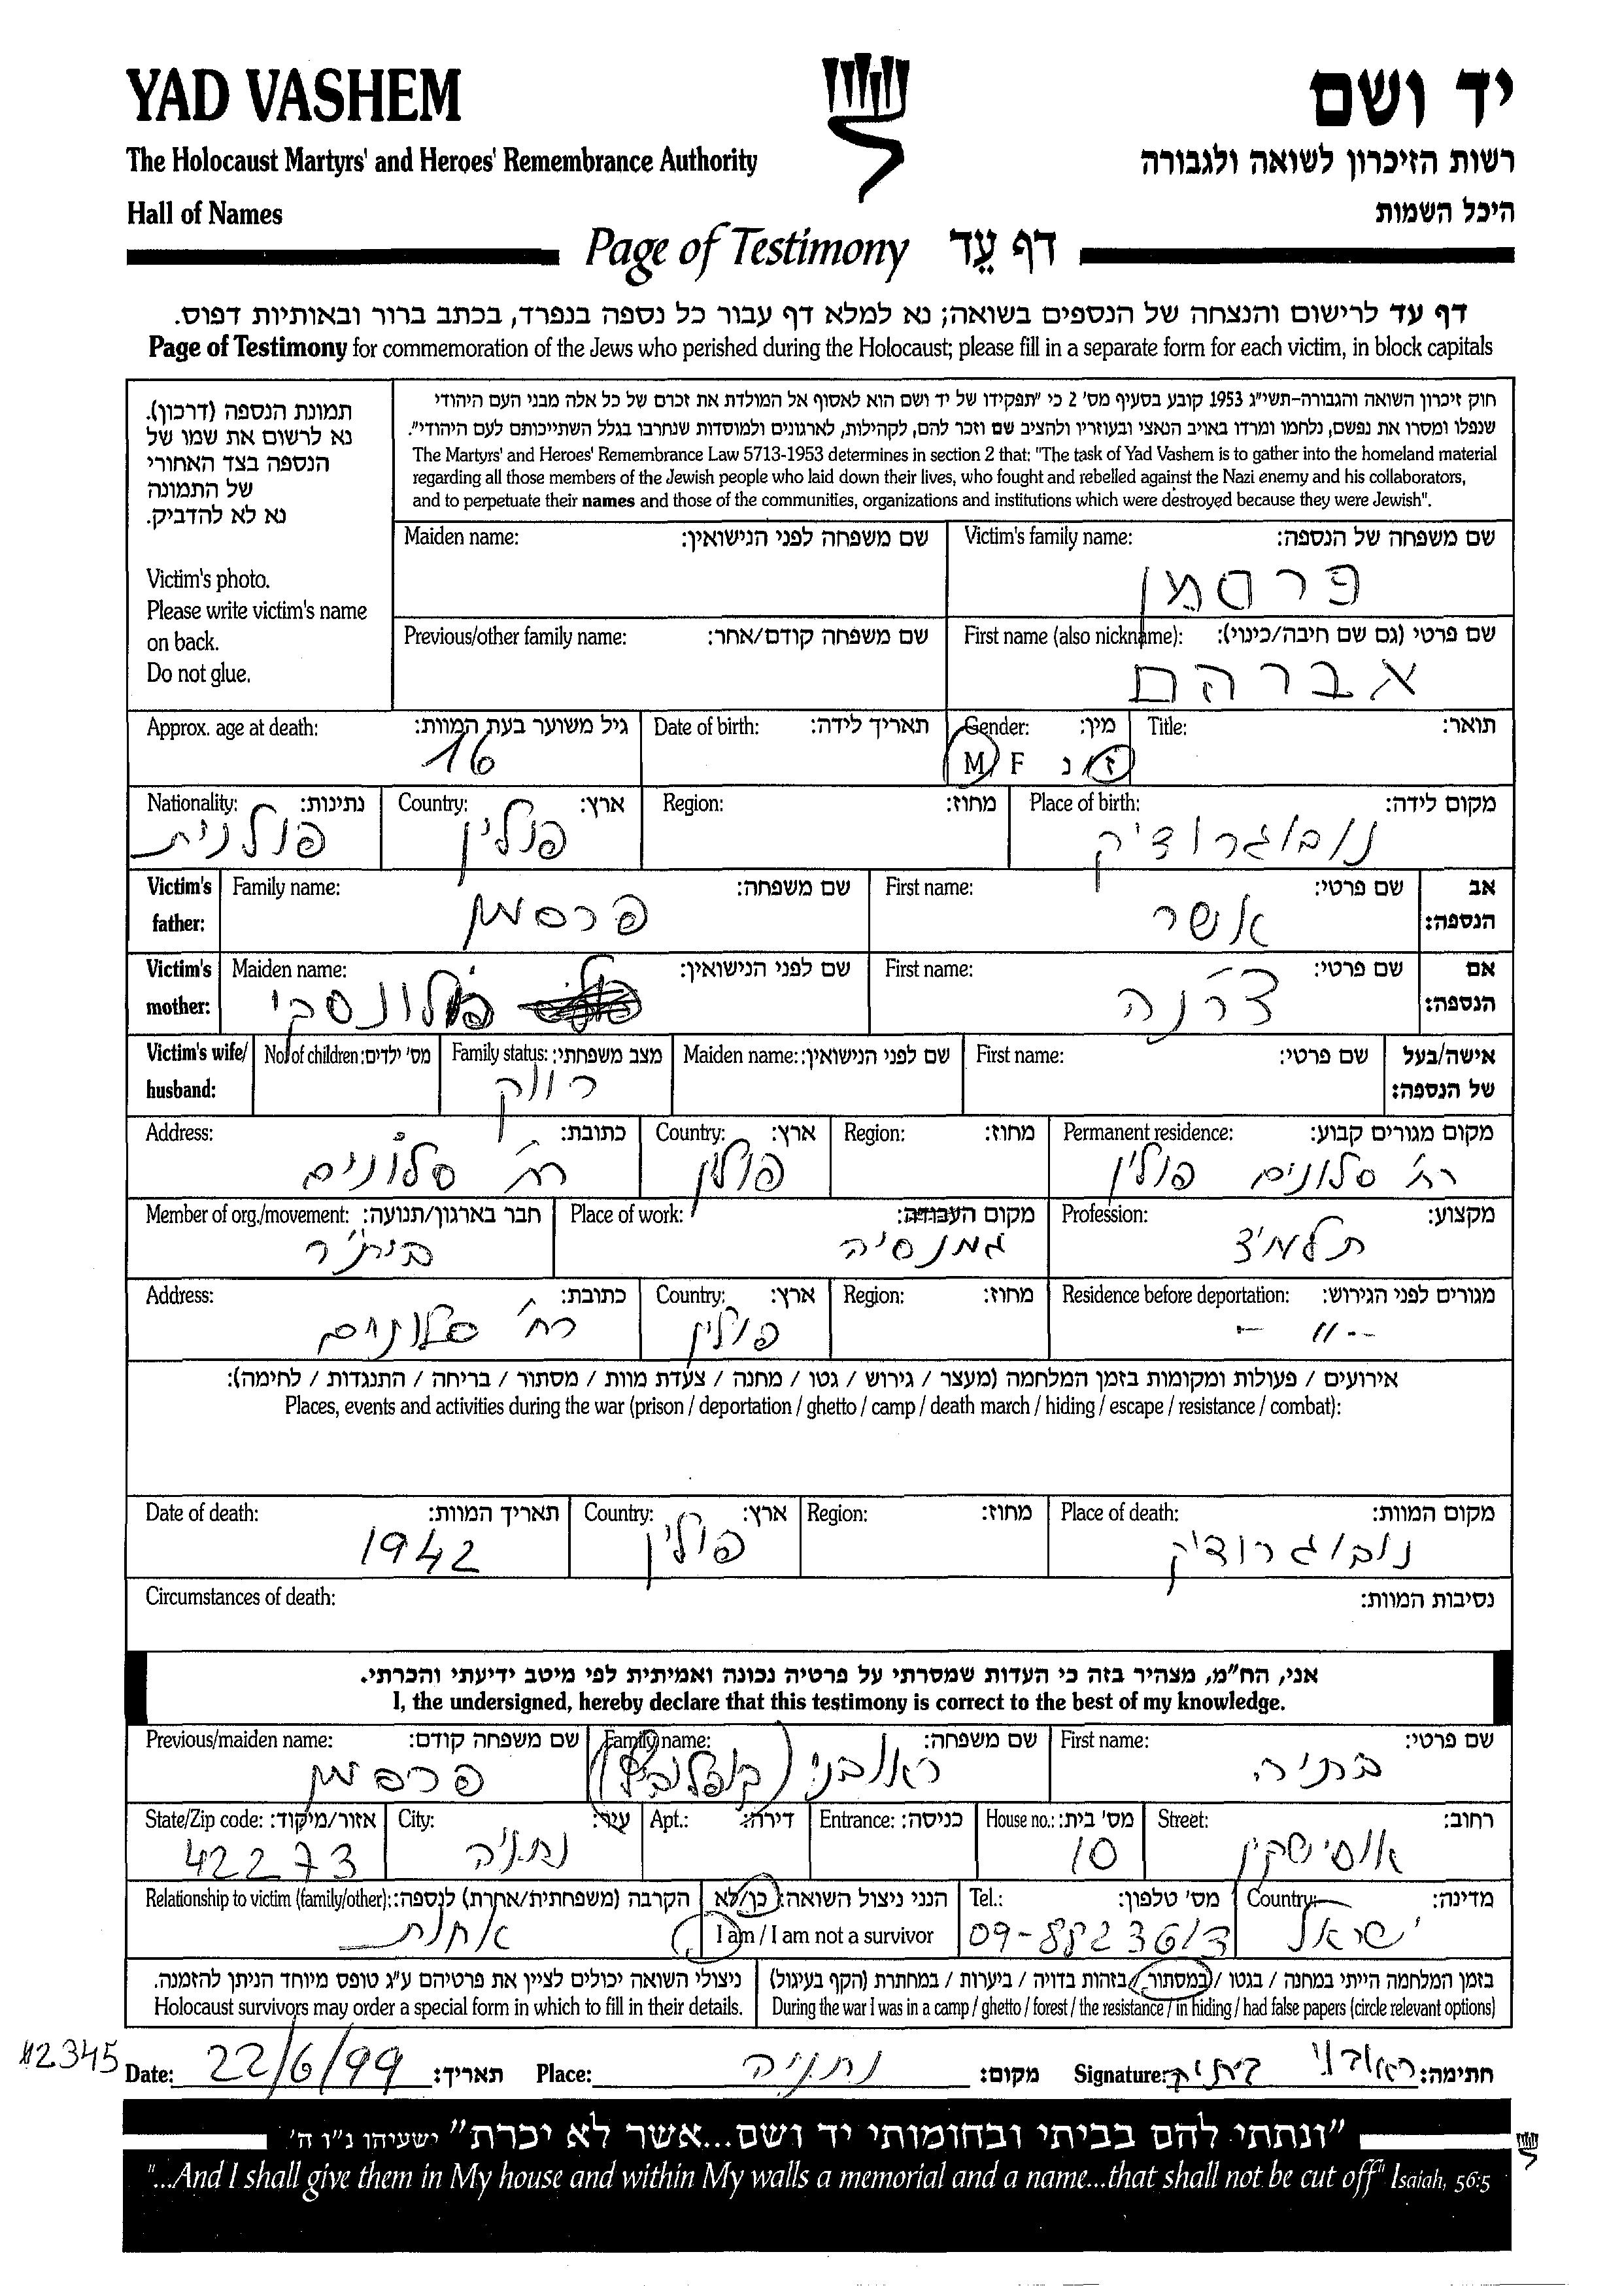 YAD VASHEM
יד ושם
The Holocaust Martyrs' and Heroes' Remembrance Authority
רשות הזיכרון לשואה ולגבורה
Hall of Names
היכל השמות
Page of Testimony דף עֵד
דף עד לרישום והנצחה של הנספים בשואה; נא למלא דף עבור כל נספה בנפרד, בכתב ברור ובאותיות דפוס.
Page of Testimony for commemoration of the Jews who perished during the Holocaust; please fill in a separate form for each victim, in block capitals
תמונת הנספה (דרכון).
נא לרשום את שמו של
הנספה בצד האחורי
של התמונה
נא לא להדביק.
Victim's photo.
Please write victim's name
on back.
Do not glue.
חוק זיכרון השואה והגבורה-תשי"ג 1953 קובע בסעיף מס' 2 כי "תפקידו של יד ושם הוא לאסוף אל המולדת את זכרם של כל אלה מבני העם היהודי
שנפלו ומסרו את נפשם, נלחמו ומרדו באויב הנאצי ובעוזריו ולהציב שם וזכר להם, לקהילות, לארגונים ולמוסדות שנחרבו בגלל השתייכותם לעם היהודי".
The Martyrs' and Heroes' Remembrance Law 5713-1953 determines in section 2 that: "The task of Yad Vashem is to gather into the homeland material
regarding all those members of the Jewish people who laid down their lives, who fought and rebelled against the Nazi enemy and his collaborators,
and to perpetuate their names and those of the communities, organizations and institutions which were destroyed because they were Jewish".
שם משפחה של הנספה: Victim's family name: שם משפחה לפני הנישואין: Maiden name:
פרסמן
שם פרטי (גם שם חיבה/כינוי): First name (also nickname): שם משפחה קודם/אחר: Previous/other family name:
אברהם
תואר: Title: מין: Gender: תאריך לידה: Date of birth: גיל משוער בעת המוות: Approx. age at death:
ז/נ M/F 16
מקום לידה: Place of birth: מחוז: Region: ארץ: Country: נתינות: Nationality:
נובוגרודיק פולין פולנית
אב הנספה: שם פרטי: First name: שם משפחה: Family name: Victim's father:
אשר פרסמן
אם הנספה: שם פרטי: First name: שם לפני הנישואין: Maiden name: Victim's mother:
פולונסקי
אישה/בעל של הנספה: שם פרטי: First name: שם לפני הנישואין: Maiden name: מצב משפחתי: Family status: מס' ילדים: No. of children: Victim's wife/husband:
רווק
מקום מגורים קבוע: Permanent residence: מחוז: Region: ארץ: Country: כתובת: Address:
רח' סלונים פולין פולין רח' סלונים
מקצוע: Profession: מקום העבודה: Place of work: חבר בארגון/תנועה: Member of org./movement:
תלמיד גמנסיה בית"ר
מגורים לפני הגירוש: Residence before deportation: מחוז: Region: ארץ: Country: כתובת: Address:
- 11 - פולין רח' סלונים
אירועים / פעולות ומקומות בזמן המלחמה (מעצר / גירוש / גטו / מחנה / צעדת מוות / מסתור / בריחה / התנגדות / לחימה):
Places, events and activities during the war (prison / deportation / ghetto / camp / death march / hiding / escape / resistance / combat):
מקום המוות: Place of death: מחוז: Region: ארץ: Country: תאריך המוות: Date of death:
נובוגרודיק פולין 1942
נסיבות המוות: Circumstances of death:
אני, הח"מ, מצהיר בזה כי העדות שמסרתי על פרטיה נכונה ואמיתית לפי מיטב ידיעתי והכרתי.
I, the undersigned, hereby declare that this testimony is correct to the best of my knowledge.
שם פרטי: First name: שם משפחה: Family name: שם משפחה קודם: Previous/maiden name:
בתיה ראובני פרסמן
רחוב: Street: מס' בית: House no.: כניסה: Entrance: דירה: Apt.: עיר: City: אזור/מיקוד: State/Zip code:
אוסישקין 10 נתניה 42273
מדינה: Country: מס' טלפון: Tel.: הנני ניצול השואה: כן/לא הקרבה (משפחתית/אחרת) לנספה: Relationship to victim (family/other):
ישראל 09-8823613 I am / I am not a survivor אחות
בזמן המלחמה הייתי במחנה / בגטו / במסתור / בזהות בדויה / ביערות / במחתרת (הקף בעיגול)
During the war I was in a camp / ghetto / forest / the resistance / in hiding / had false papers (circle relevant options)
ניצולי השואה יכולים לציין את פרטיהם ע"ג טופס מיוחד הניתן להזמנה.
Holocaust survivors may order a special form in which to fill in their details.
חתימה: ראובני בתיה Signature: מקום: נתניה Place: תאריך: 22/6/99 Date:
12345
"ונתתי להם בביתי ובחומותי יד ושם...אשר לא יכרת" ישעיהו נ"ו ה'
"...And I shall give them in My house and within My walls a memorial and a name...that shall not be cut off" Isaiah, 56:5